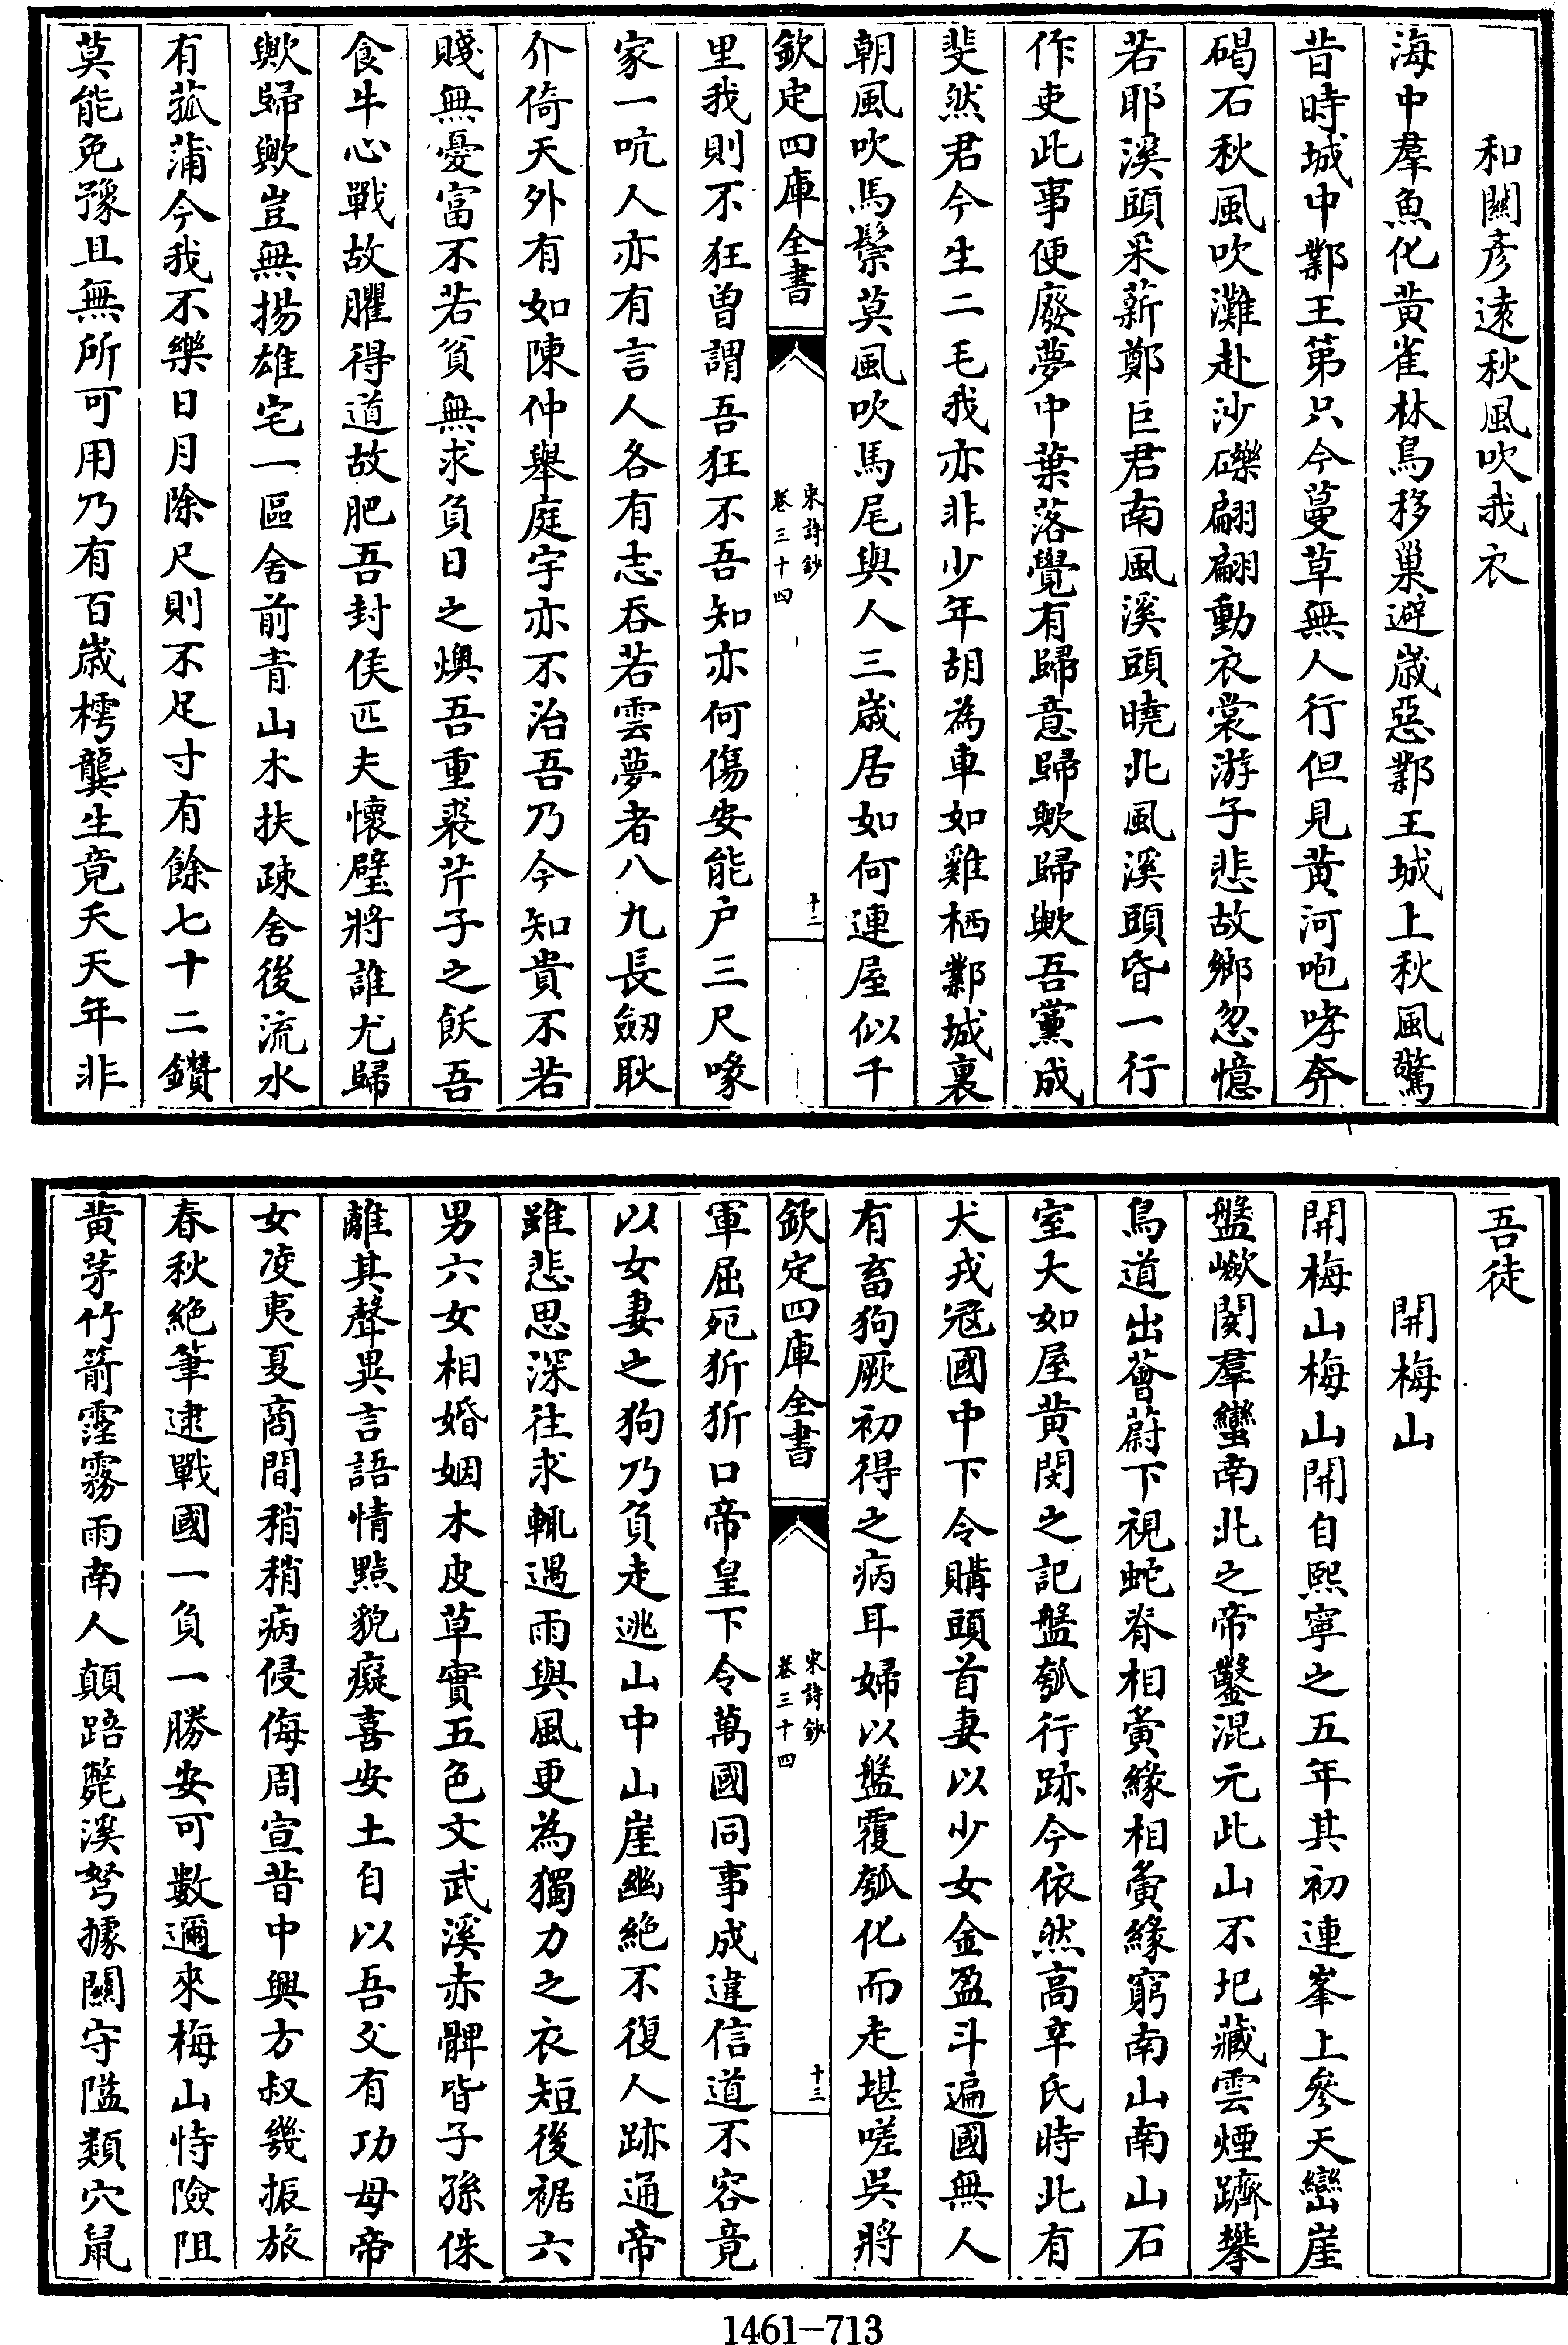 和關彥遠秋風吹我衣
海中羣魚化黃雀林鳥移巢避歲惡鄴王城上秋風驚
昔時城中鄴王第只今蔓草無人行但見黃河咆哮奔
碣石秋風吹灘赴沙礫翩翩動衣裳游子悲故鄉忽憶
若耶溪頭采薪鄭巨君南風溪頭曉北風溪頭昏一行
作吏此事便廢夢中葉落覺有歸意歸歟歸歟吾黨成
斐然君今生二毛我亦非少年胡為車如雞栖鄴城裏
朝風吹馬鬃莫風吹馬尾與人三歲居如何連屋似千
欽定四庫全書
宋詩鈔
卷三十四
十二
里我則不狂曾謂吾狂不吾知亦何傷安能户三尺喙
家一吭人亦有言人各有志吞若雲夢者八九長劒耿
介倚天外有如陳仲舉庭宇亦不治吾乃今知貴不若
賤無憂富不若貧無求負日之燠吾重裘芹子之飫吾
食牛心戰故臞得道故肥吾封侯匹夫懷璧將誰尤歸
歟歸歟豈無揚雄宅一區舍前青山木扶疎舍後流水
有菰蒲今我不樂日月除尺則不足寸有餘七十二鑽
莫能免豫且無所可用乃有百歲樗龔生竟夭天年非
吾徒
開梅山
開梅山梅山開自熙寧之五年其初連峯上參天巒崖
盤嶔閡羣蠻南北之帝鑿混元此山不圯藏雲煙躋攀
鳥道出薈蔚下視蛇脊相夤緣相夤緣窮南山南山石
室大如屋黃閔之記盤瓠行跡今依然高辛氏時北有
犬戎冦國中下令購頭首妻以少女金盈斗遍國無人
有畜狗厥初得之病耳婦以盤覆瓠化而走堪嗟吳將
欽定四庫全書
宋詩鈔
卷三十四
十三
軍屈死折折口帝皇下令萬國同事成違信道不容竟
以女妻之狗乃負走逃山中山崖幽絶不復人跡通帝
雖悲思深往求輒遇雨與風更為獨力之衣短後裾六
男六女相婚姻木皮草實五色文武溪赤髀皆子孫侏
離其聲異言語情黠貌癡喜安土自以吾父有功母帝
女凌夷夏商間稍稍病侵侮周宣昔中興方叔幾振旅
春秋絶筆逮戰國一負一勝安可數邇來梅山恃險阻
黃茅竹箭霪霧雨南人顛踣斃溪弩據關守隘類穴鼠
1461-713